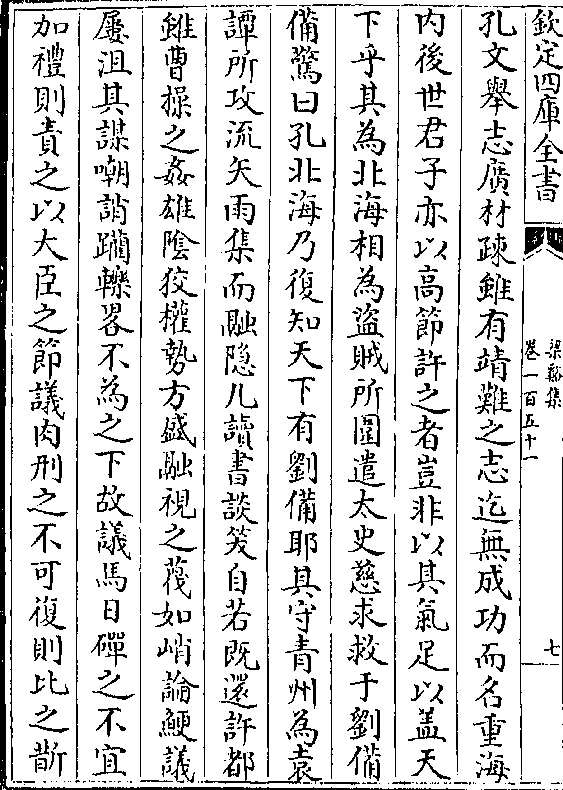 欽定四庫全書
梁谿集
卷一百五十一
七
孔文舉志廣材疎雖有靖難之志迄無成功而名重海
内後世君子亦以高節許之者豈非以其氣足以盖天
下乎其為北海相為盜賊所圍遣太史慈求救于劉備
備驚曰孔北海乃復知天下有劉備耶其守青州為袁
譚所攻流矢雨集而融隐几讀書談笑自若既還許都
雖曹操之姦雄陰狡權勢方盛融視之蔑如峭論鯁議
屢沮其謀嘲誚躪轢畧不為之下故議馬日磾之不宜
加禮則責之以大臣之節議肉刑之不可復則比之斮